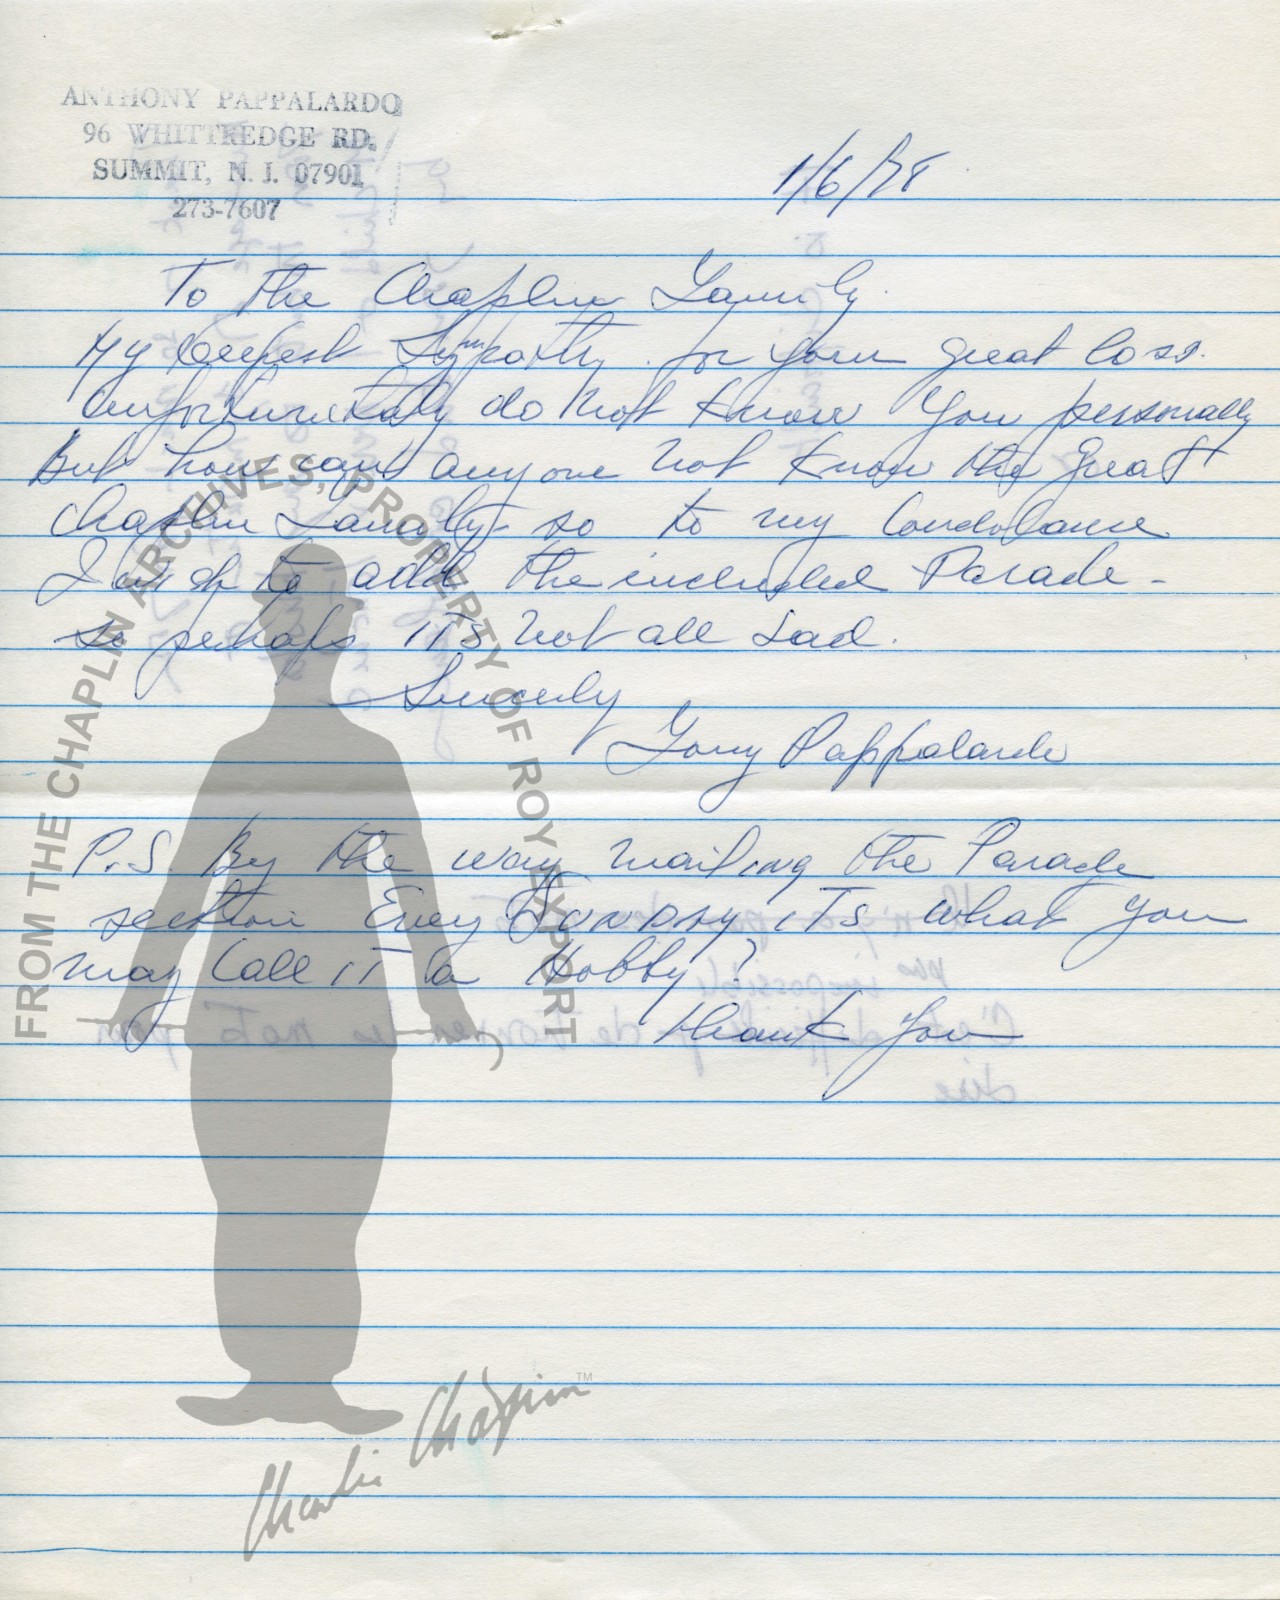 ANTHONY PAPPALARDO
96 WHITTREDGE RD.
SUMMIT, N. J. 07901
273-7607
1/6/78
To the Chaplin Family.
My Deepest Sympathy for your great loss.
Unfortunately do not know you personally
But how can anyone not know the great
Chaplin Family - so to my Condolance
I wish to add the included Parade -
so perhaps ITS not all sad.
Sincerly
Tony Pappalardo
P.S. By the way mailing the Parade
section Every Sunday, ITS what you
may Call IT a Hobby?
thank you
FROM THE CHAPLIN ARCHIVES, PROPERTY OF ROY EXPORT
Charlie Chaplin™